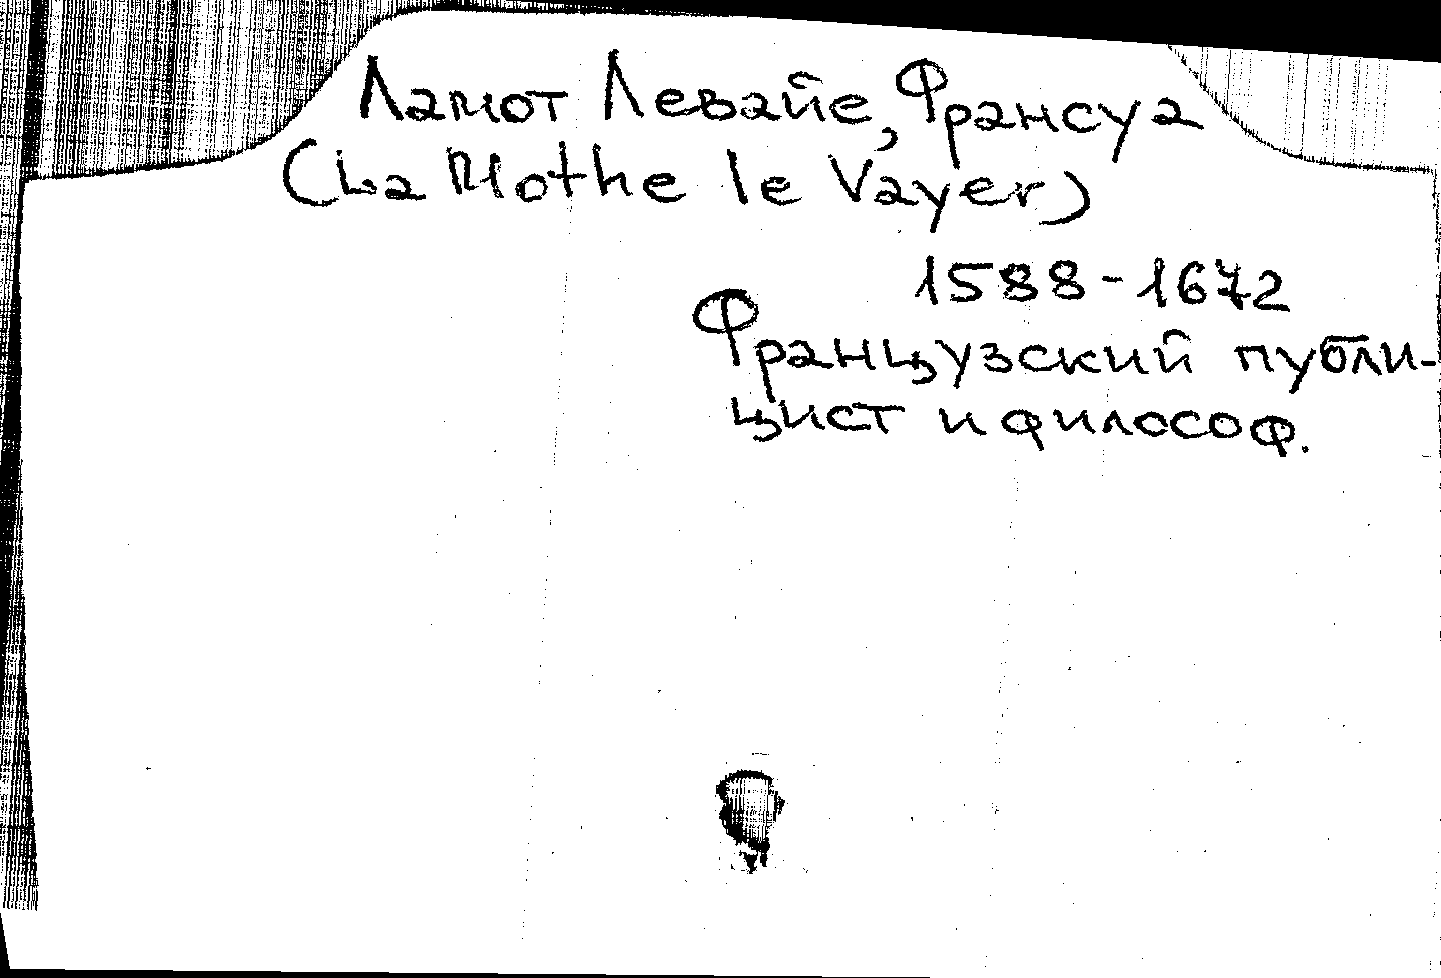 Ламот Левайе, Франсуа
(La Mothe le Vayer)
1588-1672
Французский публи-
цист и философ.